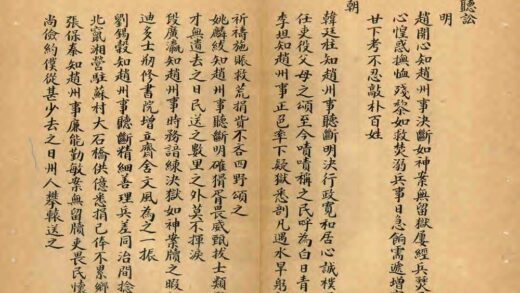 聽訟
明
趙開心知趙州事決斷如神案無留獄屢經兵燹
心惶惑撫恤殘黎如救焚弱兵事日急餉需遞增
甘下考不忍敲朴百姓
朝
韓廷柱知趙州事聽斷明決行政寬和居心誠樸
任吏役父母之頌至今嘖嘖稱之民呼為白日青
李垣知趙州事正色率下疑獄悉剖凡遇水旱躬
祈禱施賑救荒捐貲不吝四野頌之
姚麟綬知趙州事聽斷明確猾胥畏威甄拔士類
才無遺去之日民送之數里之外莫不揮淚
段廣瀛知趙州事時務諳練決獄如神案牘之暇
迪多士剏修書院增立齋舍文風為之一振
劉錫穀知趙州事聽斷精細善理兵差同治間捻
北竄湘營駐蘇村大石橋供億悉捐己俸不累鄉
張保泰知趙州事廉能勤敏案無留牘吏畏民懷
尚儉約僕從甚少去之日州人攀轅送之